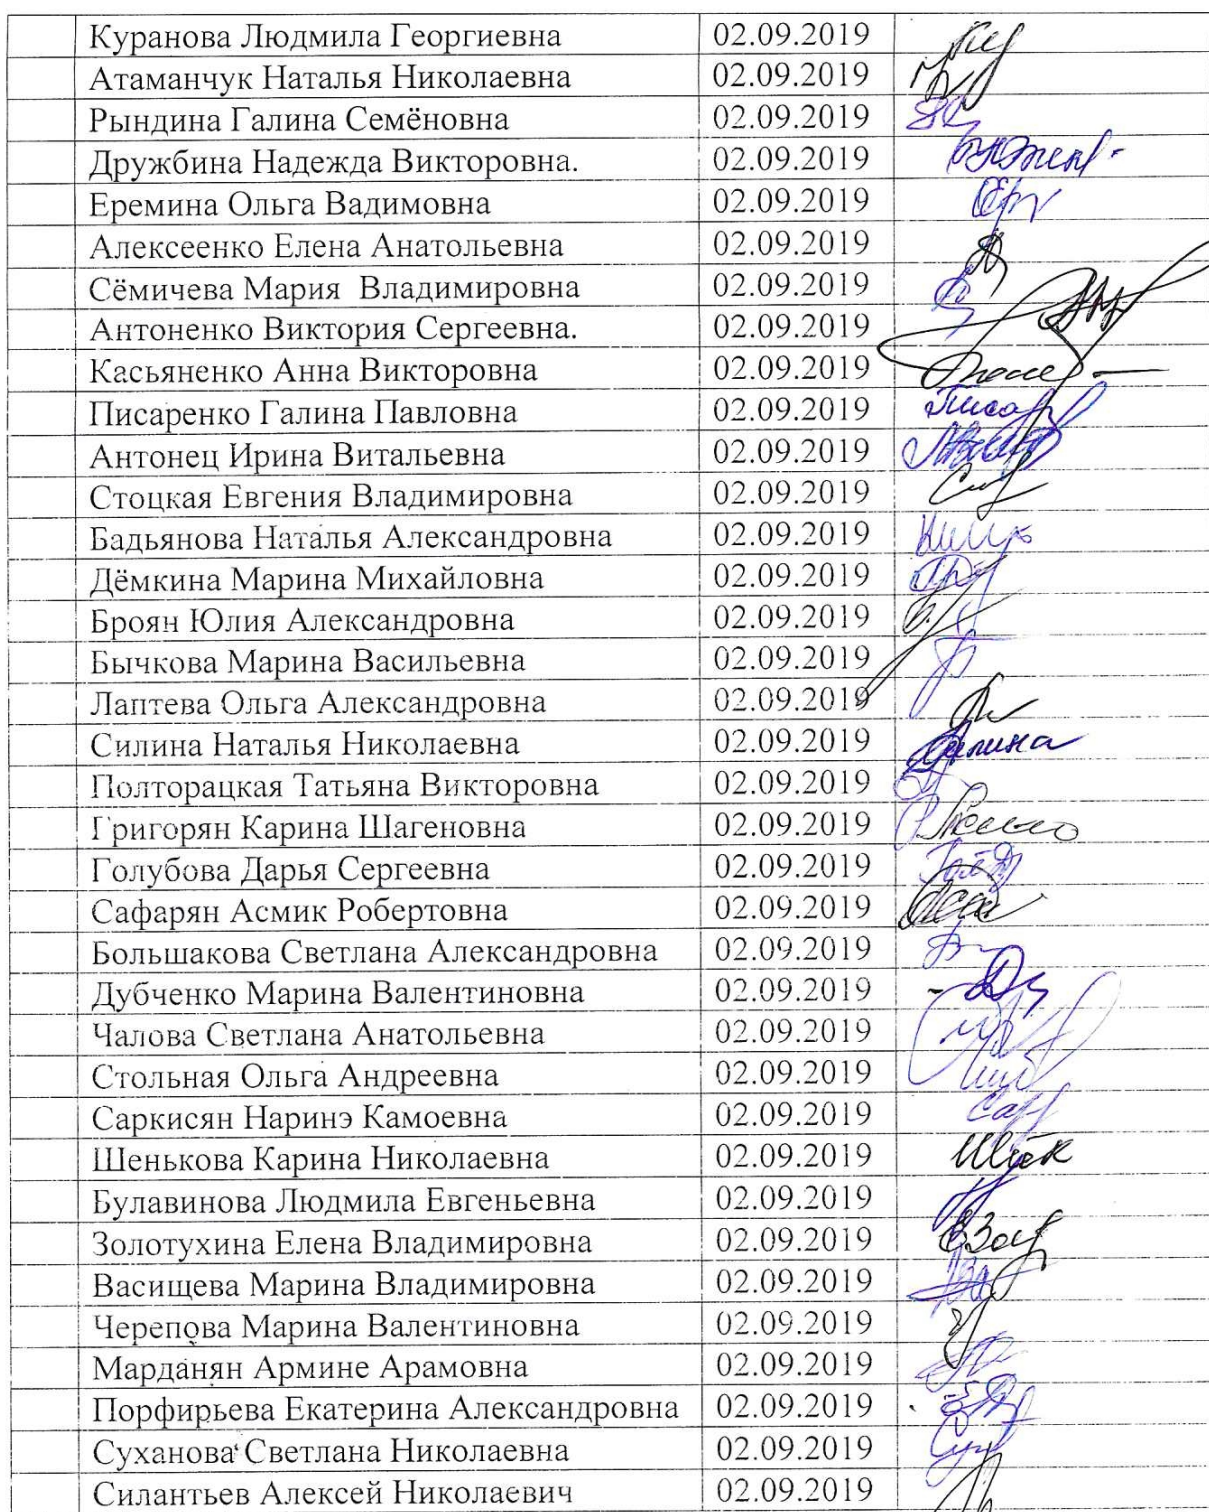 Куранова Людмила Георгиевна 02.09.2019
Атаманчук Наталья Николаевна 02.09.2019
Рындина Галина Семёновна 02.09.2019
Дружбина Надежда Викторовна. 02.09.2019
Еремина Ольга Вадимовна 02.09.2019
Алексеенко Елена Анатольевна 02.09.2019
Сёмичева Мария Владимировна 02.09.2019
Антоненко Виктория Сергеевна. 02.09.2019
Касьяненко Анна Викторовна 02.09.2019
Писаренко Галина Павловна 02.09.2019
Антонец Ирина Витальевна 02.09.2019
Стоцкая Евгения Владимировна 02.09.2019
Бадьянова Наталья Александровна 02.09.2019
Дёмкина Марина Михайловна 02.09.2019
Броян Юлия Александровна 02.09.2019
Бычкова Марина Васильевна 02.09.2019
Лаптева Ольга Александровна 02.09.2019
Силина Наталья Николаевна 02.09.2019 Силина
Полторацкая Татьяна Викторовна 02.09.2019
Григорян Карина Шагеновна 02.09.2019
Голубова Дарья Сергеевна 02.09.2019
Сафарян Асмик Робертовна 02.09.2019
Большакова Светлана Александровна 02.09.2019
Дубченко Марина Валентиновна 02.09.2019
Чалова Светлана Анатольевна 02.09.2019
Стольная Ольга Андреевна 02.09.2019
Саркисян Наринэ Камоевна 02.09.2019
Шенькова Карина Николаевна 02.09.2019
Булавинова Людмила Евгеньевна 02.09.2019
Золотухина Елена Владимировна 02.09.2019
Васищева Марина Владимировна 02.09.2019
Черепова Марина Валентиновна 02.09.2019
Марданян Армине Арамовна 02.09.2019
Порфирьева Екатерина Александровна 02.09.2019
Суханова Светлана Николаевна 02.09.2019
Силантьев Алексей Николаевич 02.09.2019